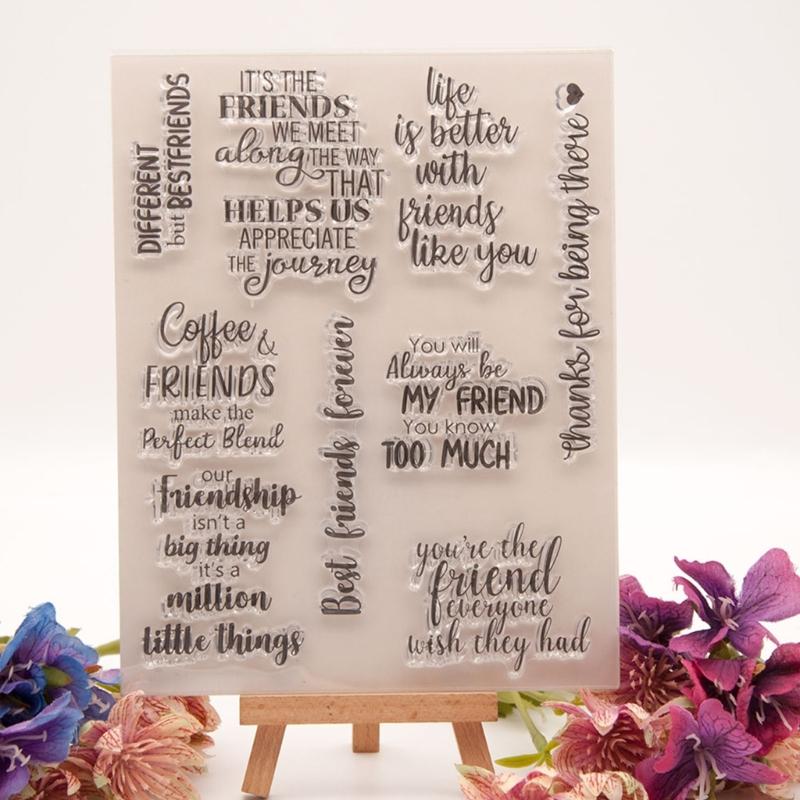 DIFFERENT
but BESTFRIENDS
IT'S THE
FRIENDS
WE MEET
along THE WAY
THAT
HELPS US
APPRECIATE
THE journey
life
is better
with
friends
like you
thanks for being there
Coffee &
FRIENDS
make the
Perfect Blend
Best friends forever
You will
Always be
MY FRIEND
You know
TOO MUCH
our
friendship
isn't a
big thing
it's a
million
little things
you're the
friend
everyone
wish they had